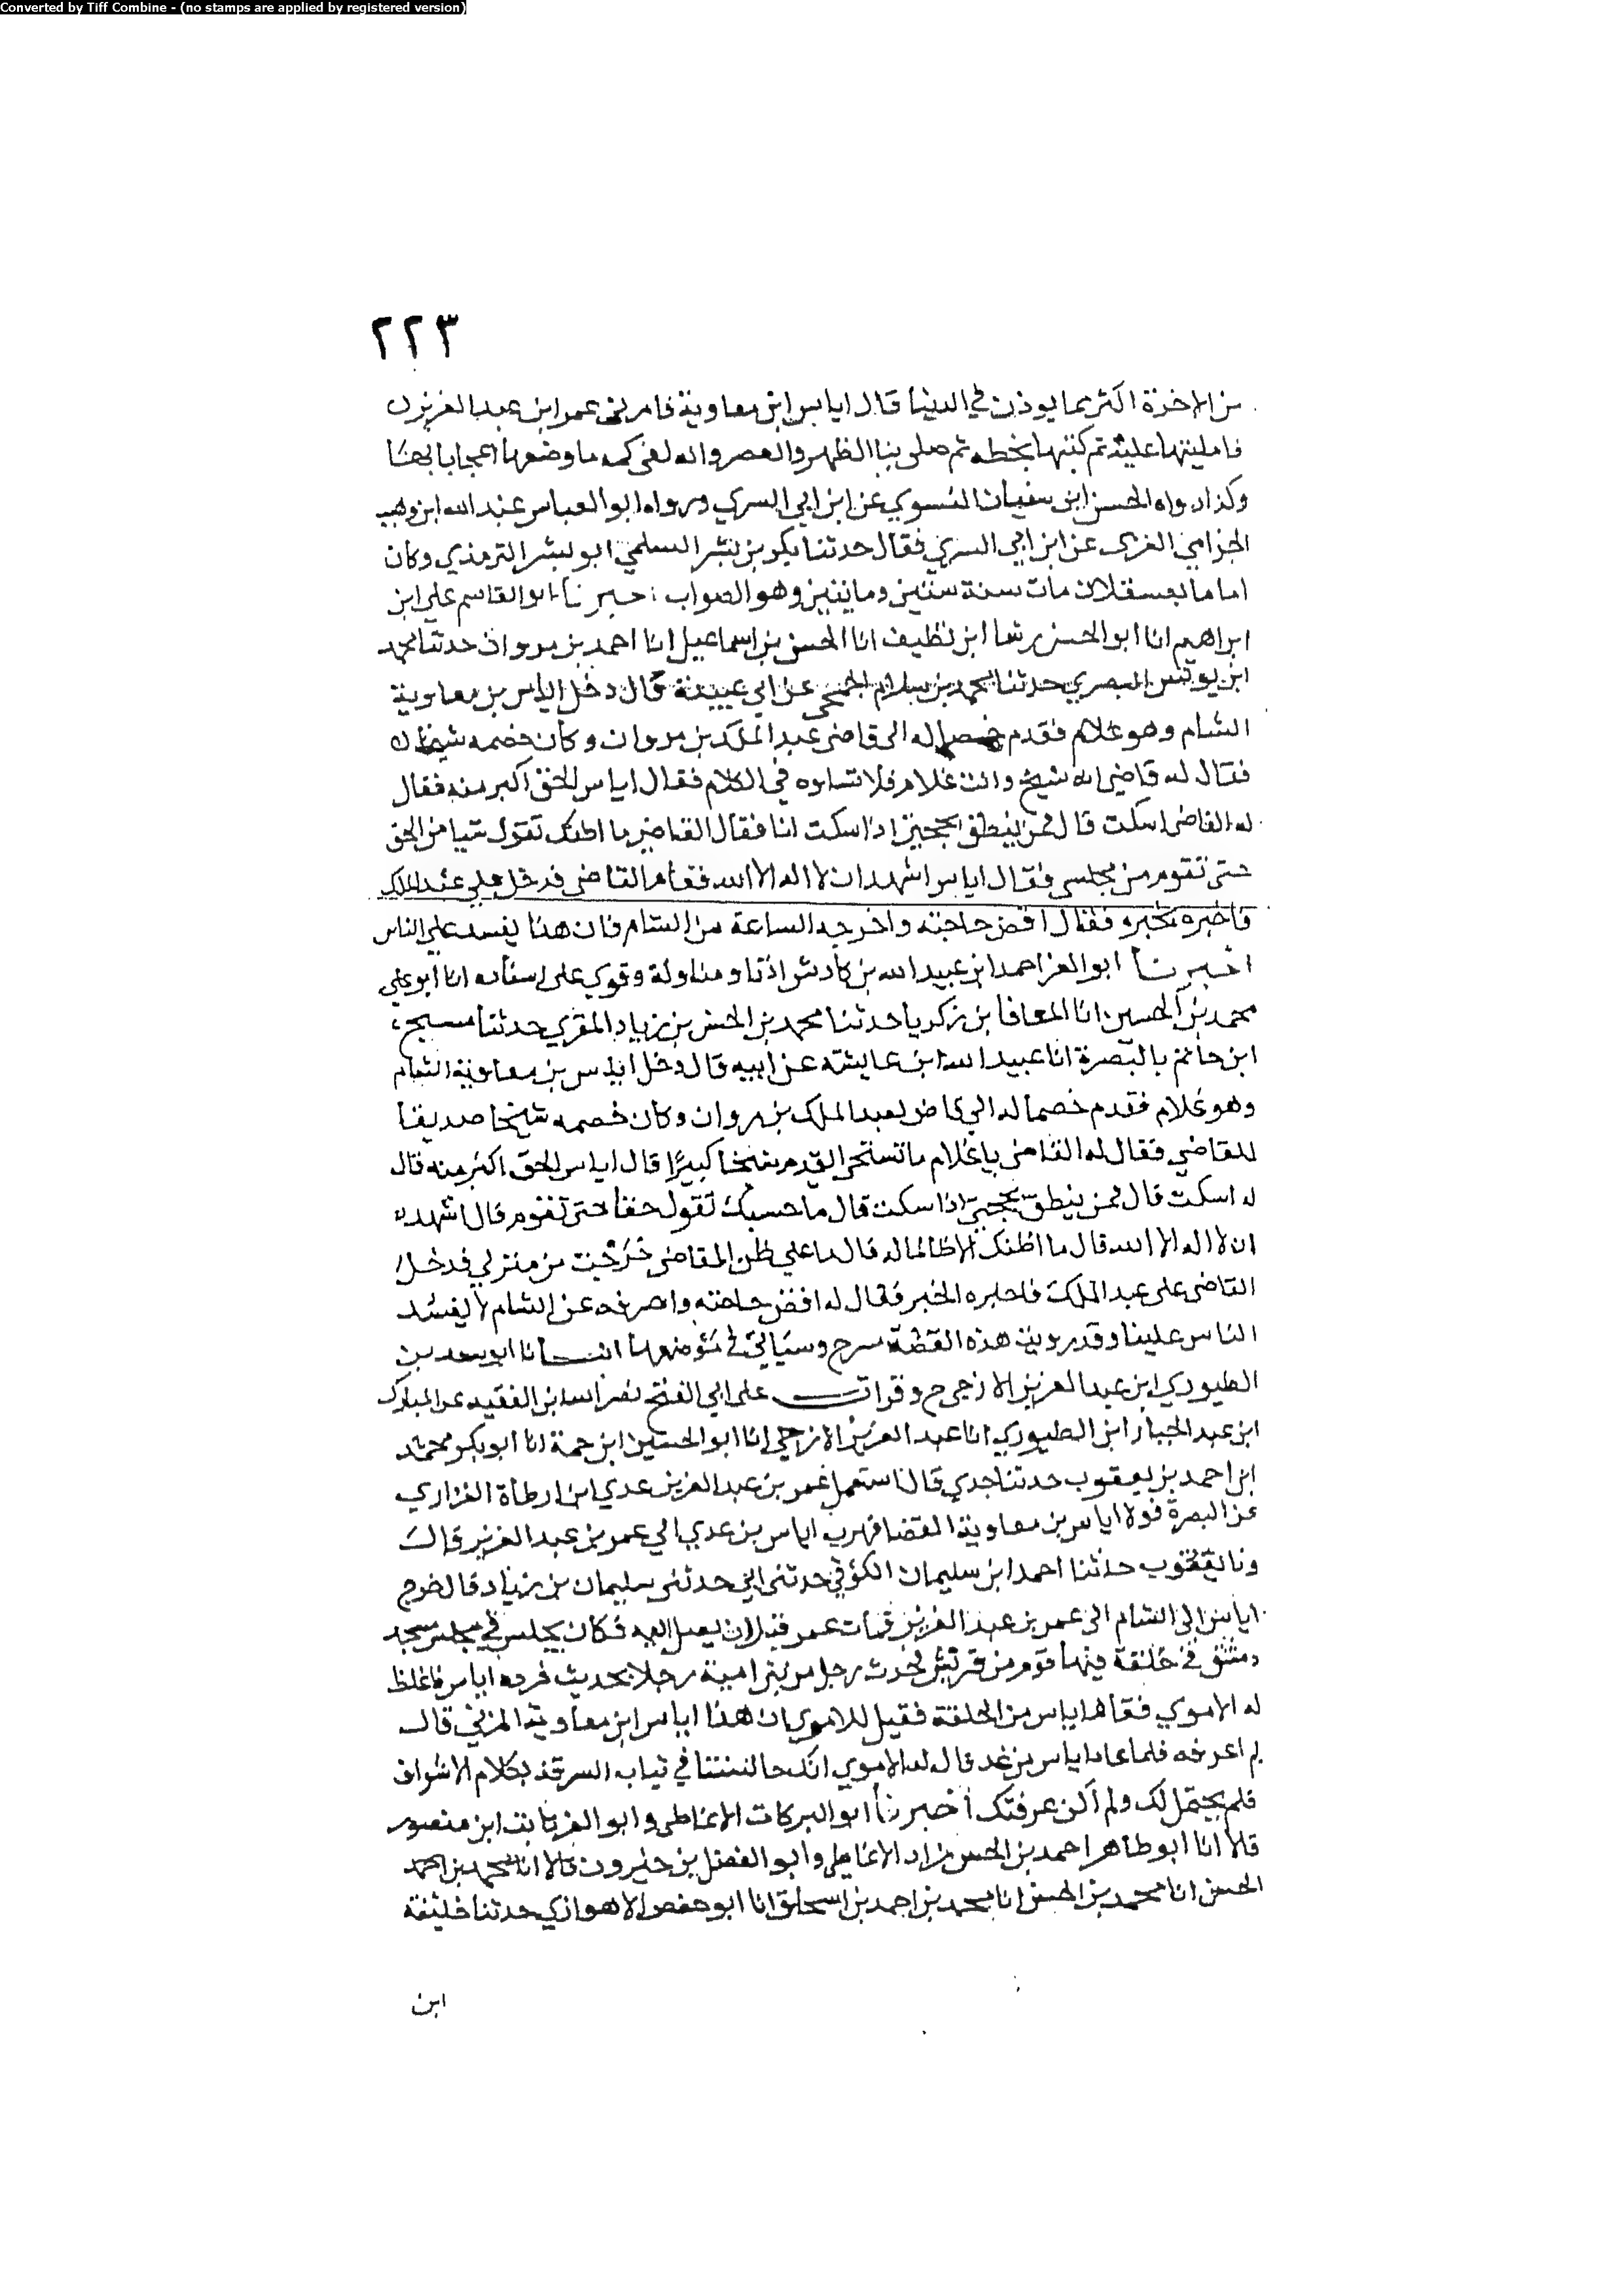 Converted by Tiff Combine - (no stamps are applied by registered version)
٢٢٣
من الاخرة اكثر مما يوذن في الدنيا قال اياس ابن معاوية فامرني عمر ابن عبد العزيز
فامليتها عليه ثم كتبها بخطه ثم صلى بنا الظهر والعصر وانه لفي كمه ما وضعها اعجابا بها
وكذا رواه الحسن ابن سفيان النسوي عن ابن ابي السري ورواه ابو العباس عبد الله ابن وهيب
الجزامي الغزي عن ابن ابي السري فقال حدثنا بكر بن بشر السلمي ابو بشر الترمذي وكان
اماما بعسقلان مات سنة ستين ومايتين وهو الصواب اخبرنا ابو القاسم علي ابن
ابراهيم انا ابو الحسن رشا ابن نظيف انا الحسن بن اسماعيل انا احمد بن مروان حدثنا محمد
ابن يونس البصري حدثنا محمد بن سلام الجمحي عن ابي عبيدة قال دخل اياس بن معاوية
الشام وهو غلام فقدم خصما له الى قاضي عبد الملك بن مروان وكان خصمه شيخا
فقال له قاضي انه شيخ وانت غلام فلا تساوه في الكلام فقال اياس الحق اكبر منه فقال
له القاضي اسكت قال فمن ينطق بحجتي اذا سكت انا فقال القاضي ما اظنك تقول شيا من الحق
حتى تقوم من مجلسي فقال اياس اشهد ان لا اله الا الله فقام القاضي فدخل علي عبد الملك
فاخبره بخبره فقال اقض حاجته واخرجه الساعة من الشام فان هذا يفسد علي الناس
اخبرنا ابو العز احمد ابن عبيد الله بن كادش اذنا ومناولة وقري على اسناده انا ابو علي
محمد بن الحسين انا المعافا بن زكريا حدثنا محمد بن الحسن بن زياد المقري حدثنا مسبح
ابن حاتم بالبصرة انا عبيد الله ابن عايشه عن ابيه قال دخل اياس بن معاوية الشام
وهو غلام فقدم خصما له الي قاض لعبد الملك بن مروان وكان خصمه شيخا صديقا
للقاضي فقال له القاضي يا غلام ما تستحي القدم شيخا كبيرا قال اياس الحق اكبر منه قال
له اسكت قال فمن ينطق بحجتي اذا سكت قال ما حسبك تقول حقا حتى تقوم قال اشهد
ان لا اله الا الله قال ما اظنك الا ظالما له قال ما علي ظن القاضي خرجت من منزلي فدخل
القاضي على عبد الملك فاخبره الخبر فقال له اقض حاجته واصرفه عن الشام لا يفسد
الناس علينا وقد رويت هذه القصة وسياتي في موضعها انبانا ابو سعد بن
الطيوري ابن عبد العزيز الازجي ح وقرات علي ابي الفتح نصر الله ابن الفقيه عن المبارك
ابن عبد الجبار ابن الطيوري انا عبد العزيز الازجي انا ابو الحسين ابن حمة انا ابو بكر محمد
ابن احمد بن يعقوب حدثنا جدي قال استعمل عمر بن عبد العزيز عدي ابن ارطاة الفزاري
عن البصرة فولا اياس بن معاوية القضا فهرب اياس بن عدي الي عمر بن عبد العزيز قال
ونا يعقوب حدثنا احمد ابن سليمان الكوفي حدثني ابي حدثني سليمان بن زياد قال خرج
اياس الى الشام الى عمر بن عبد العزيز فمات عمر قبل ان يصل اليه فكان يجلس في مجلس مسجد
دمشق في حلقة فيها قوم من قريش فحدث رجل من بني امية رجلا بحديث فرده اياس فاغلظ
له الاموي فقام اياس من الحلقة فقيل للاموي ان هذا اياس ابن معاوية المزني قال
لم اعرفه فلما عاد اياس من غد قال له الاموي انك جالستنا في ثياب السوقة بكلام الاشراف
فلم يحتمل لك ولم اكن عرفتك اخبرنا ابو البركات الانماطي وابو العز ثابت ابن منصور
قالا انا ابو طاهر احمد بن الحسن زاد الانماطي وابو الفضل بن خيرون قالا انا محمد بن احمد
الحسن انا محمد بن الحسن انا محمد بن احمد بن اسحاق انا ابو حفص الاهوازي حدثنا خليفة
ابن